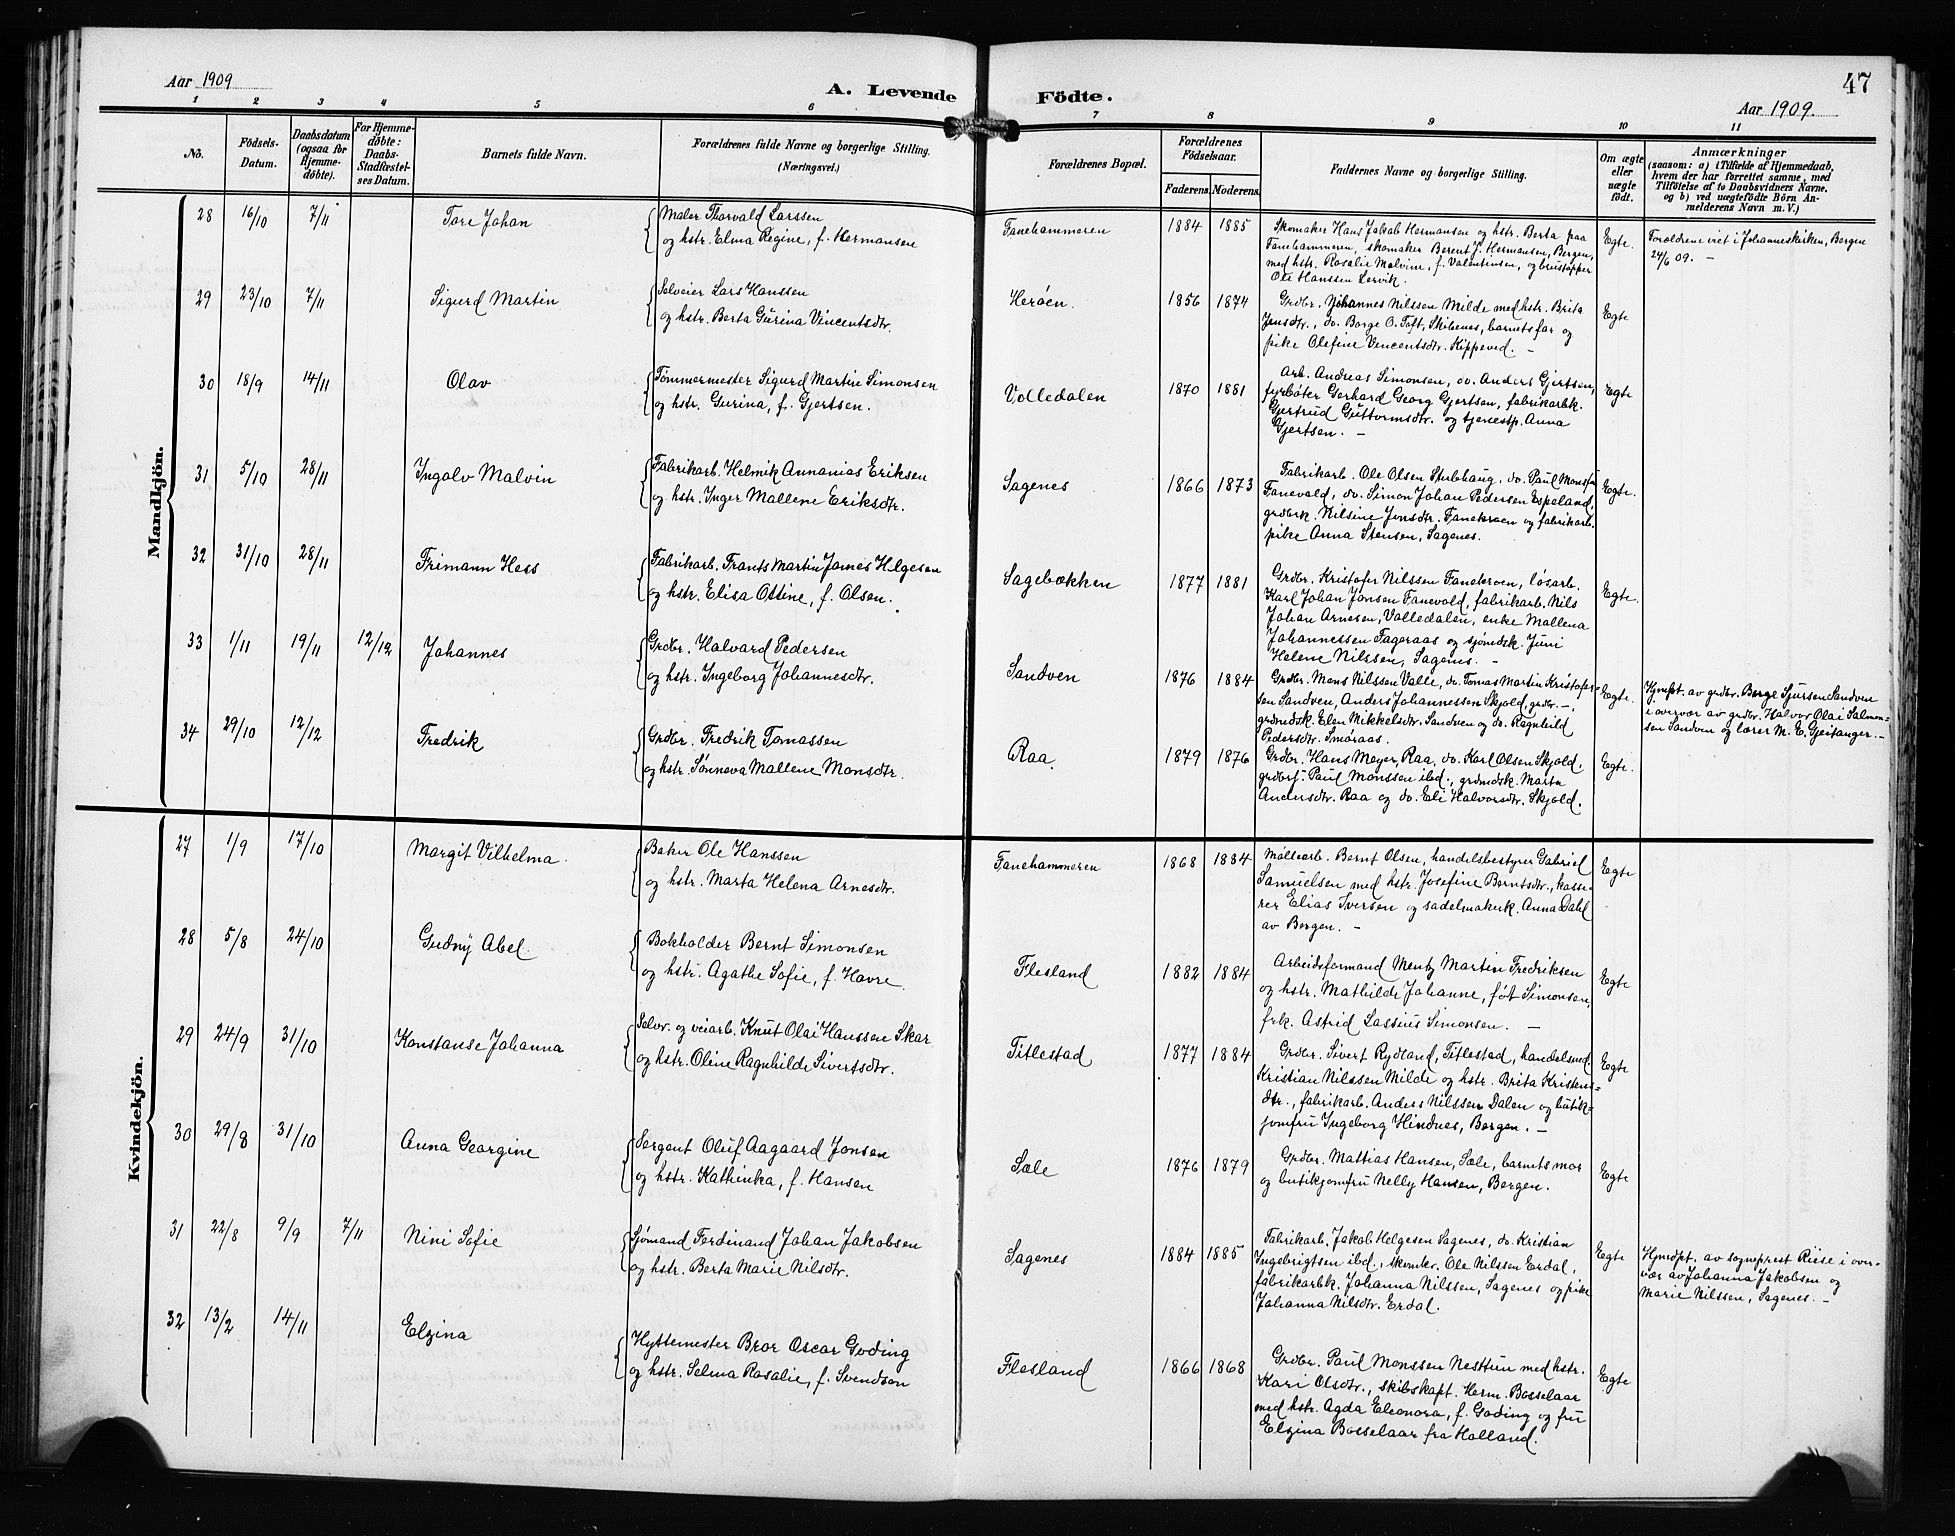 Aar 1909
A. Levende Födte.
47
Aar 1909.
1 2 3 4 5 6 7 8 9 10 11
No.
Födsels-Datum.
Daabsdatum (ogsaa for Hjemme-döbte).
For Hjemme-döbte: Daabs-Stadfæstel-ses Datum.
Barnets fulde Navn.
Forældrenes fulde Navne og borgerlige Stilling. (Næringsvei.)
Forældrenes Bopæl.
Forældrenes Födselsaar.
Faderens. Moderens.
Faddernes Navne og borgerlige Stilling.
Om ægte eller uægte födt.
Anmærkninger
(saasom: a) i Tilfælde af Hjemmedaab, hvem der har forrettet samme, med Tilföielse af to Daabsvidners Navne, og b) ved uægtefödte Börn Anmelderens Navn m. V.)
Mandkjön.
28 16/10 7/11 Tore Johan
Maler Thorvald Larssen
og hstr. Elma Regine, f. Hermansen
Fanehammeren 1884 1885
Skomaker Hans Jakob Hermansen og hstr. Berta paa
Fanehammeren, skomaker Berent J. Hermansen, Bergen,
med hstr. Rosalie Malvine, f. Valentinsen, og
Ole Hanssen Lervik.
Egte.
Forældrene viet i Johanneskirken, Bergen
24/6 09. –
29 23/10 7/11 Sigurd Martin
Selveier Lars Hanssen
og hstr. Berta Gurina Vincentsdtr.
Herøen. 1856 1874
Grdbr. Johannes Nilssen Milde med hstr. Brita
Jensdtr., do. Borge O. Toft, Skibenes, barnets far og
pike Olefine Vencentsdtr. Kippeved. –
Egte
30 18/9 14/11 Olav
Tømmermester Sigurd Martin Simonsen
og hstr. Gurina, f. Gjertsen.
Volledalen 1870 1881
Arb. Andreas Simonsen, do. Anders Gjertsen,
fyrbøter Gerhard Georg Gjertsen, fabrikarbk.
Gjertrud Guttormsdtr. og tjenestp. Anna
Gjertsen. –
Egte
31 5/10 28/11 Ingolv Malvin
Fabrikarb. Helmik Annanias Eriksen
og hstr. Inger Mallene Eriksdtr.
Sagenes 1866 1873
Fabrikarb. Ole Olsen Stubhaug, do. Paul Monsen
Fanevald, do. Simon Johan Pedersen Espeland,
grdbrk. Nilsine Jonsdtr. Fanekroen og fabrikarb.
pike Anna Stensen, Sagenes.
Egte.
32 31/10 28/11 Frimann Hess
Fabrikarb. Frants Martin James Helgesen
og hstr. Elisa Ottine, f. Olsen.
Sagebækken 1877 1881
Grdbr. Kristofer Nilssen Fanekroen, løsarb.
Karl Johan Jansen Fanevold, fabrikarb. Nils
Johan Arnesen, Valledalen, enke Mallena
Johannessen Fageraas og sjømdsk. Juni
Helene Nilssen, Sagenes. –
Egte.
33 1/11 19/11 12/12 Johannes
Grdbr. Halvard Pedersen
og hstr. Ingeborg Johannesdtr.
Sandven 1876 1884
Grdbr. Mons Nilssen Valle, do. Tomas Martin Kristofer-
sen Sandven, Anders Johannessen Skjold, grdbr. –,
grdmdsk. Elen Mikkelsdtr. Sandven og do. Ragnhild
Pedersdtr. Smøraas.
Egte.
Hjmdpt. av grdbr. Berge Sjursen Sandven
i overvær av grdbr. Halvor Olai Salmon-
sen Sandven og lærer M. E. Gjeitanger. –
34 29/10 12/12 Fredrik
Grdbr. Fredrik Tomassen
og hstr. Sønneva Mallene Monsdtr.
Raa. 1879 1876
Grdbr. Hans Meyer, Raa, do. Karl Olsen Skjold,
grdbrf. Paul Monssen ibd., grdmdsk. Marta
Andersdtr. Raa og do. Eli Halvorsdtr. Skjold.
Egte.
Kvindekjön.
27 1/9 17/10 Margit Vilhelma.
Baker Ole Hanssen
og hstr. Marta Helena Arnesdtr.
Fanehammeren 1868 1884
Møllearb. Bernt Olsen, handelsbestyrer Gabriel
Samuelsen med hstr. Josefine Berntsdtr., kasse-
rer Elias Iversen og sadelmakerk. Anna Dahl
av Bergen. –
Egte
28 5/8 24/10 Gudny Abel.
Bokholder Bernt Simonsen
og hstr. Agathe Sofie, f. Havre.
Flesland 1882 1884
Arbeidsformand Mentz Martin Fredriksen
og hstr. Mathilde Johanne, født Simonsen,
frk. Astrid Lassius Simonsen. –
Egte
29 24/9 31/10 Konstanse Johanna
Selvr. og veiarb. Knut Olai Hanssen Skar
og hstr. Oline Ragnhilde Sivertsdtr.
Titlestad 1877 1884
Grdbr. Sivert Rydland, Titlestad, handelsmd.
Kristian Nilssen Milde og hstr. Brita Kristens-
dtr., fabrikarb. Anders Nilssen Dalen og butik-
jomfru Ingeborg Hindnes, Bergen. –
Egte
30 29/8 31/10 Anna Georgine
Sergent Oluf Aagaard Jonsen
og hstr. Kathinka, f. Hansen
Sæle 1876 1879
Grdbr. Mattias Hansen, Sæle, barnets mor
og butikjomfru Nelly Hansen, Bergen.
Egte
31 22/8 9/9 7/11 Nini Sofie
Sjømand Ferdinand Johan Jakobsen
og hstr. Berta Marie Nilsdtr.
Sagenes 1884 1885
Fabrikarb. Jakob Helgesen Sagenes, do. Kristian
Ingebrigtsen ibd., skomkr. Ole Nilssen Erdal,
fabrikarbk. Johanna Nilssen, Sagenes og pike
Johanna Nilsdtr. Erdal.
Egte
Hjmdpt. av sogneprest Riese i over-
vær av Johanna Jakobsen og
Marie Nilssen, Sagenes. –
32 13/2 14/11 Elzina
Hyttemester Bror Oscar Goding
og hstr. Selma Rosalie, f. Svendson
Flesland 1866 1868
Grdbr. Paul Monssen Nesttun med hstr.
Kari Olsdtr., skibskapt. Herm. Bosselaar
med hstr. Agda Eleonora, f. Goding og fru
Elzina Bosselaar fra Holland.
Egte